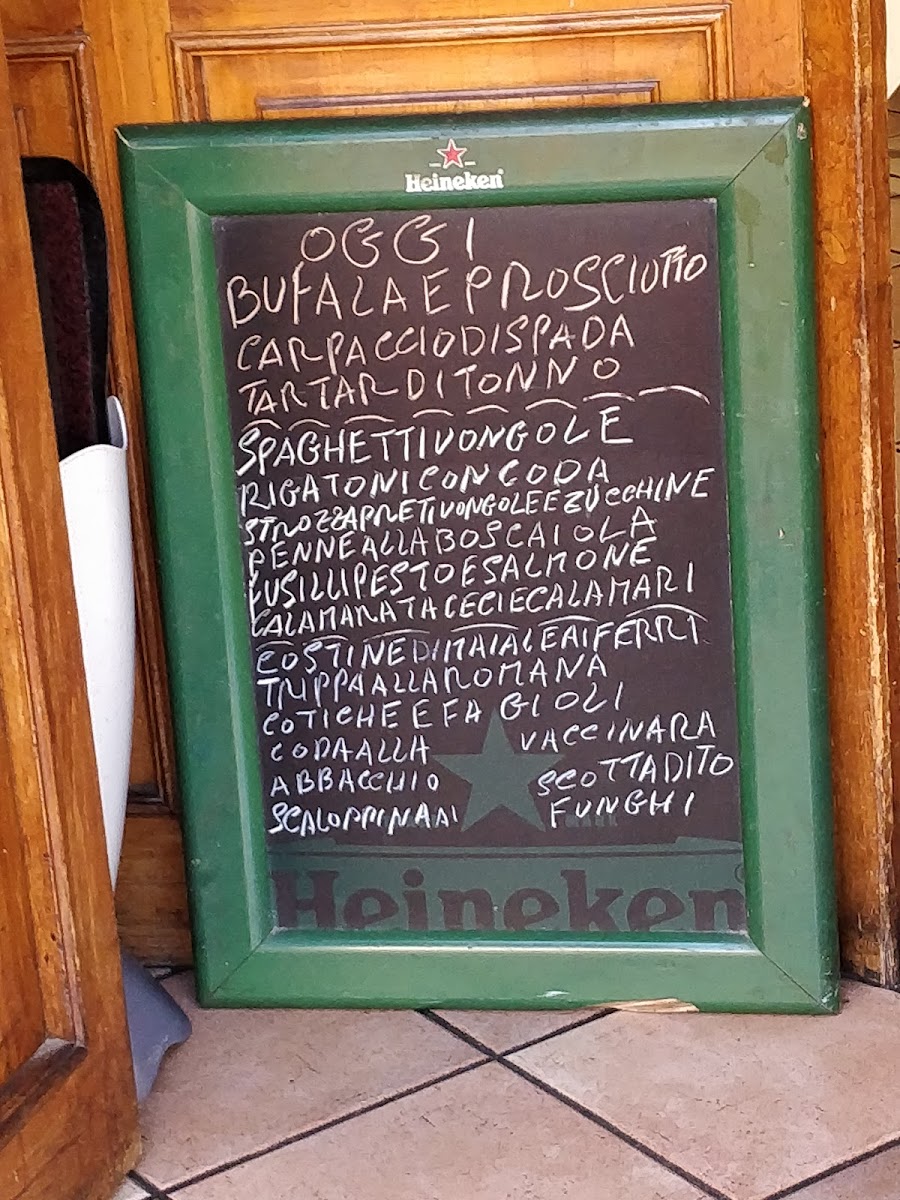 Heineken
OGGI
BUFALA E PROSCIUTTO
CARPACCIO DI SPADA
TARTAR DI TONNO
SPAGHETTI VONGOLE
RIGATONI CON CODA
STROZZAPRETI VONGOLE E ZUCCHINE
PENNE ALLA BOSCAIOLA
FUSILLI PESTO E SALMONE
CALAMARATA CECI E CALAMARI
COSTINE DI MAIALE AI FERRI
TRIPPA ALLA ROMANA
COTICHE E FAGIOLI
CODA ALLA VACCINARA
ABBACCHIO SCOTTADITO
SCALOPPINA AI FUNGHI
Heineken